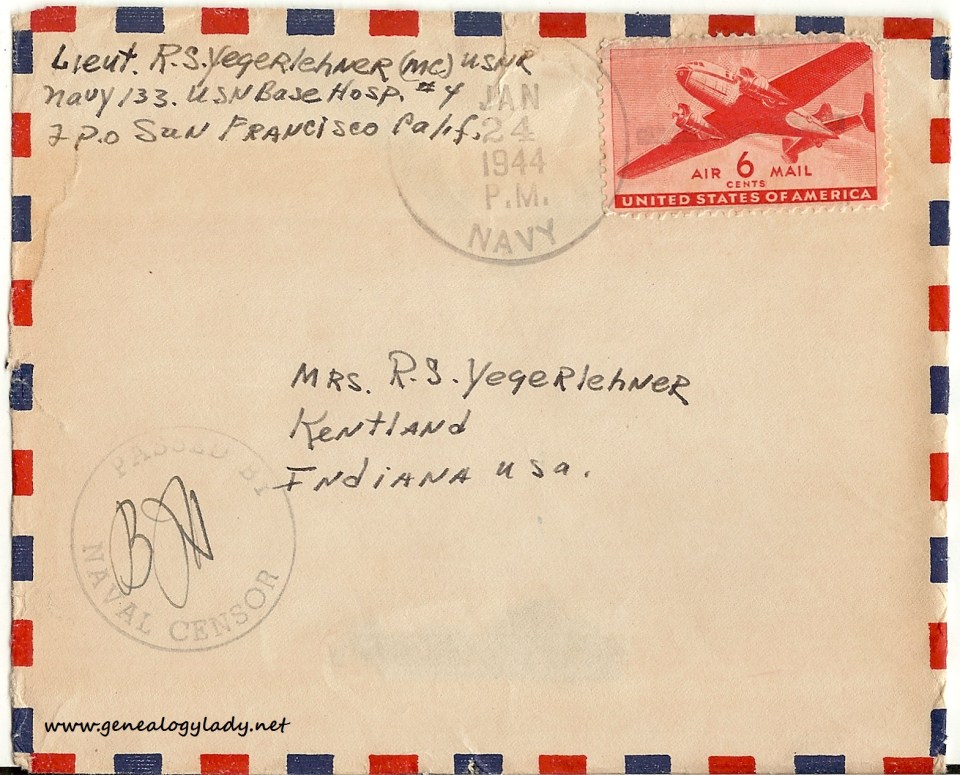 Lieut. R.S. Yegerlehner (MC) USNR
Navy 133. USN Base Hosp. #4
F P.O San Francisco Calif.
JAN
24
1944
P.M.
NAVY
AIR 6 MAIL
CENTS
UNITED STATES OF AMERICA
Mrs. R.S. Yegerlehner
Kentland
Indiana USa.
PASSED BY
NAVAL CENSOR
www.genealogylady.net